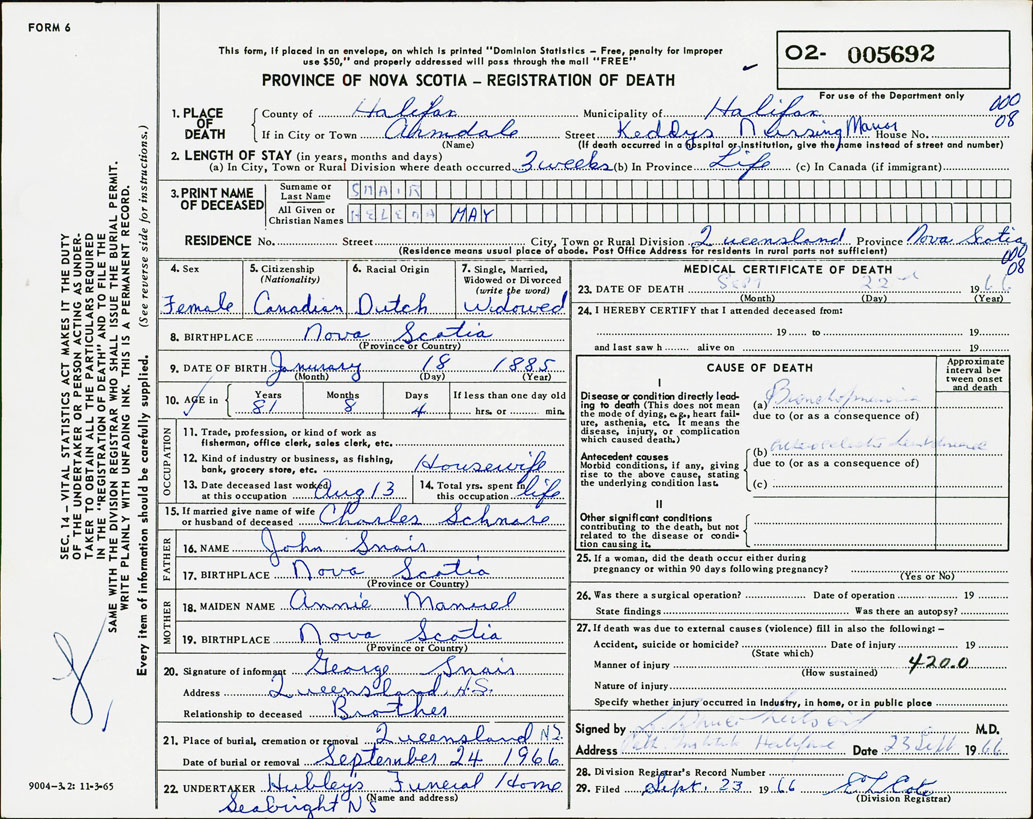 FORM 6
This form, if placed in an envelope, on which is printed "Dominion Statistics – Free, penalty for improper
use $50," and properly addressed will pass through the mail "FREE"
PROVINCE OF NOVA SCOTIA – REGISTRATION OF DEATH
O2- 005692
For use of the Department only
000
08
1. PLACE OF DEATH
County of Halifax Municipality of Halifax
If in City or Town Armdale Street Keddys Nursing Manor House No.
(Name) (If death occurred in a hospital or institution, give the name instead of street and number)
2. LENGTH OF STAY (in years, months and days)
(a) In City, Town or Rural Division where death occurred 3 weeks (b) In Province Life (c) In Canada (if immigrant)
3. PRINT NAME OF DECEASED
Surname or Last Name SNAIR
All Given or Christian Names HELENA MAY
RESIDENCE No. Street City, Town or Rural Division Queensland Province Nova Scotia
(Residence means usual place of abode. Post Office Address for residents in rural parts not sufficient)
000
08
4. Sex Female
5. Citizenship (Nationality) Canadian
6. Racial Origin Dutch
7. Single, Married, Widowed or Divorced (write the word) Widowed
8. BIRTHPLACE Nova Scotia
(Province or Country)
9. DATE OF BIRTH Janurary 18 1885
(Month) (Day) (Year)
10. AGE in Years Months Days If less than one day old
81 8 4 hrs. or min.
OCCUPATION
11. Trade, profession, or kind of work as
fisherman, office clerk, sales clerk, etc.
12. Kind of industry or business, as fishing,
bank, grocery store, etc. Housewife
13. Date deceased last worked at this occupation Aug 13
14. Total yrs. spent in this occupation life
15. If married give name of wife
or husband of deceased Charles Schnare
FATHER
16. NAME John Snair
17. BIRTHPLACE Nova Scotia
(Province or Country)
MOTHER
18. MAIDEN NAME Annie Manuel
19. BIRTHPLACE Nova Scotia
(Province or Country)
20. Signature of informant George Snair
Address Queensland, N.S.
Relationship to deceased Brother
21. Place of burial, cremation or removal Queensland NS.
Date of burial or removal September 24 1966
22. UNDERTAKER Hubley's Funeral Home
Seabright NS (Name and address)
MEDICAL CERTIFICATE OF DEATH
23. DATE OF DEATH Sept 22nd 1966
(Month) (Day) (Year)
24. I HEREBY CERTIFY that I attended deceased from:
19 to 19
and last saw h alive on 19
CAUSE OF DEATH
Approximate interval between onset and death
I
Disease or condition directly lead-
ing to death (This does not mean
the mode of dying, e.g., heart fail-
ure, asthenia, etc. It means the
disease, injury, or complication
which caused death.)
(a) Bronchopneumonia
due to (or as a consequence of)
Antecedent causes
Morbid conditions, if any, giving
rise to the above cause, stating
the underlying condition last.
(b)
due to (or as a consequence of)
(c)
II
Other significant conditions
contributing to the death, but not
related to the disease or condi-
tion causing it.
25. If a woman, did the death occur either during
pregnancy or within 90 days following pregnancy?
(Yes or No)
26. Was there a surgical operation? Date of operation 19
State findings Was there an autopsy?
27. If death was due to external causes (violence) fill in also the following: –
Accident, suicide or homicide? Date of injury 19
(State which)
Manner of injury 420.0
(How sustained)
Nature of injury
Specify whether injury occurred in Industry, in home, or in public place
Signed by M.D.
Address Halifax Date 23 Sept 1966
28. Division Registrar's Record Number
29. Filed Sept. 23 1966
(Division Registrar)
SEC. 14 – VITAL STATISTICS ACT MAKES IT THE DUTY
OF THE UNDERTAKER OR PERSON ACTING AS UNDER-
TAKER TO OBTAIN ALL THE PARTICULARS REQUIRED
IN THE "REGISTRATION OF DEATH" AND TO FILE THE
SAME WITH THE DIVISION REGISTRAR WHO SHALL ISSUE THE BURIAL PERMIT.
WRITE PLAINLY WITH UNFADING INK. THIS IS A PERMANENT RECORD.
Every item of information should be carefully supplied. (See reverse side for instructions.)
9004-3.2: 11-3-65